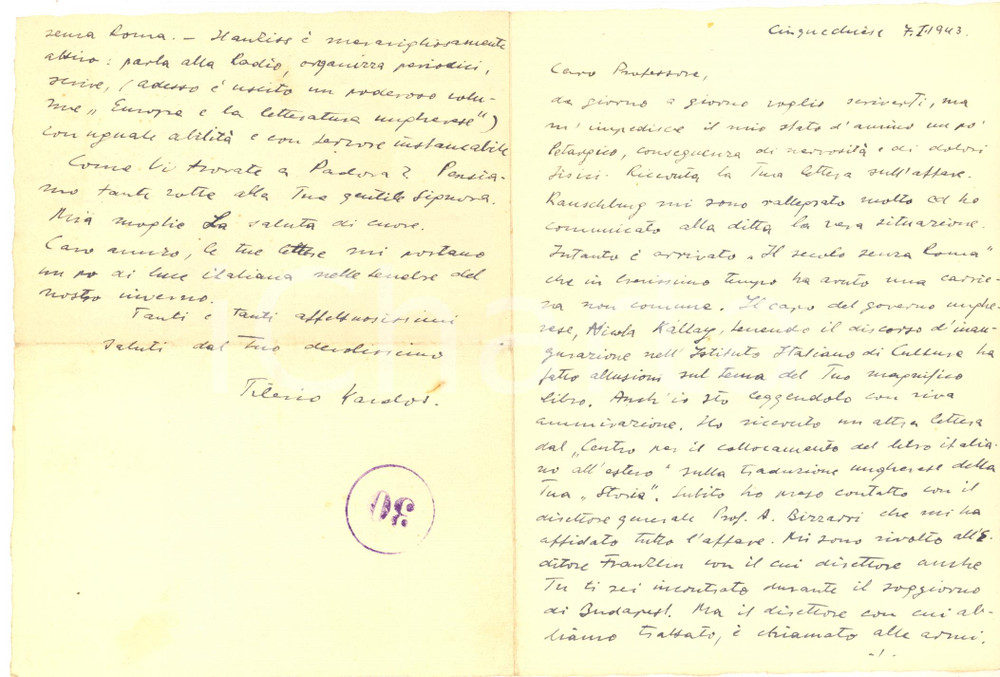 Cinquechiese 7.I.1943.
Caro Professore,
da giorno a giorno voglio scriverti, ma
m'impedisce il mio stato d'animo un po'
letargico, conseguenza di nervosità e di dolori
fisici. Ricevuta la Tua lettera sull'affare
Rauschburg mi sono rallegrato molto ed ho
comunicato alla ditta la vera situazione.
Intanto è arrivato „Il secolo senza Roma"
che in brevissimo tempo ha avuto una carrie-
ra non comune. Il capo del governo unghe-
rese, Nicola Kállay, tenendo il discorso d'inau-
gurazione nell'Istituto Italiano di Cultura ha
fatto allusioni sul tema del Tuo magnifico
libro. Anch'io sto leggendolo con viva
ammirazione. Ho ricevuto un'altra lettera
dal „Centro per il collocamento del libro italia-
no all'estero" sulla traduzione ungherese della
Tua „Storia". Subito ho preso contatto con il
direttore generale Prof. A. Bizzarri che mi ha
affidato tutto l'affare. Mi sono rivolto all'E-
ditore Franklin con il cui direttore anche
Tu ti sei incontrato durante il soggiorno
di Budapest. Ma il direttore con cui ab-
biamo trattato, è chiamato alle armi.
./.
senza Roma. — Hankiss è meravigliosamente
attivo: parla alla Radio, organizza periodici,
scrive, (adesso è uscito un poderoso volu-
me „Europa e la letteratura ungherese")
con uguale abilità e con fervore instancabile.
Come Vi trovate a Padova? Pensia-
mo tante volte alla Tua gentile Signora.
Mia moglie La saluta di cuore.
Caro amico, le tue lettere mi portano
un po di luce italiana nelle tenebre del
nostro inverno.
Tanti e tanti affettuosissimi
saluti dal Tuo devotissimo
Tiberio Kardos.
30